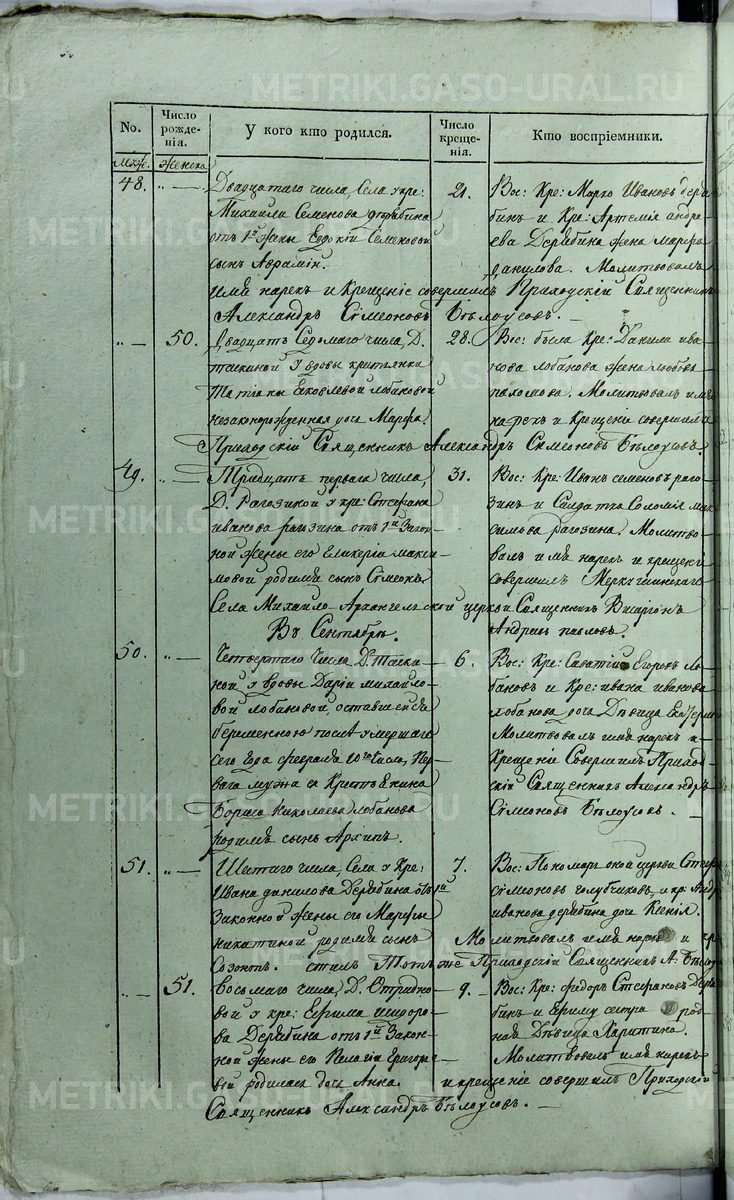 No.
Число рожде-
нія.
У кого кто родился.
Число
крещe-
нія.
Кто воспріемники.
Муж. Женска
48. „ —
Двадцатаго числа, Села у кре:
Михаила Семенова Дерябина
отъ 1й жены Евдокіи Семеновой
сынъ Авраамій.
21.
Вос: Кре: Марко Ивановъ Деря-
бинъ и Кре: Артемія Андре-
ева Дерябина жена Марфа
Данилова. Молитвовалъ
имя нарекъ и Крещеніе совершилъ Приходскій Священникъ
Александръ Симеоновъ Бѣлоусовъ.
„ — 50.
Двадцать Седьмаго числа, Д.
у вдовы крестьянки
Татіаны Яковлевой Лобановой
незаконорожденная дочь Марфа.
28.
Вос: была Кре: Данила Ива-
нова Лобанова жена Любовь
Пахомова. Молитвовалъ имя
нарекъ и Крещеніе совершилъ
Приходскій Священникъ Александръ Симеоновъ Бѣлоусовъ.
49. „ —
Тридцать перваго числа,
Д. Рагозиной у кре: Стефана
Иванова Рагозина отъ 1й Закон-
ной жены его Гликеріи Макси-
мовой родился сынъ Симеонъ.
31.
Вос: Кре: Иванъ Семеновъ Раго-
зинъ и Солдатка Соломія Мак-
симова Рагозина. Молитво-
валъ имя нарекъ и крещеніе
совершилъ
Села Михайло-Архангельской церкви Священникъ Висаріонъ
Андреевъ Павловъ.
Въ Сентябрѣ.
50. „ —
Четвертаго Числа Д.
у вдовы Даріи Михайло-
вой Лобановой, оставшейся
беременною послѣ умершаго
сего года февраля 10го числа, пер-
ваго мужа ея Крестьянина
Бориса Николаева Лобанова
родился сынъ Архипъ.
6.
Вос: Кре: Саватій Егоровъ Ло-
бановъ и Кре: Ивана Иванова
Лобанова дочь Дѣвица
Молитвовалъ имя нарекъ и
Крещеніе Совершилъ Приход-
скій Священникъ Александръ
Симеоновъ Бѣлоусовъ.
51. „ —
Шестаго числа, Села у Кре:
Ивана Данилова Дерябина отъ 1й
Законной жены его Марфы
Никитиной родился сынъ
Созонтъ.
7.
Вос: Пономарь оной церкви
Симеоновъ Голубчиковъ, и кр:
Иванова Дерябина дочь Ксенія.
Молитвовалъ имя нарекъ и
тотъ же Приходскій Священникъ А. Бѣлоу
„ — 51.
Восьмаго числа, Д.
у кре: Ефима
Дерябина отъ 1й Закон-
ной жены его Пелагіи Григорь-
вой родилась дочь Анна.
9.
Вос: Кре: Федоръ Стефановъ Деря-
бинъ и Ефиму сестра род-
ная Дѣвица Харитина.
Молитвовалъ имя нарекъ
и крещеніе совершилъ Приходскій
Священникъ Александръ Бѣлоусовъ.
METRIKI.GASO-URAL.RU